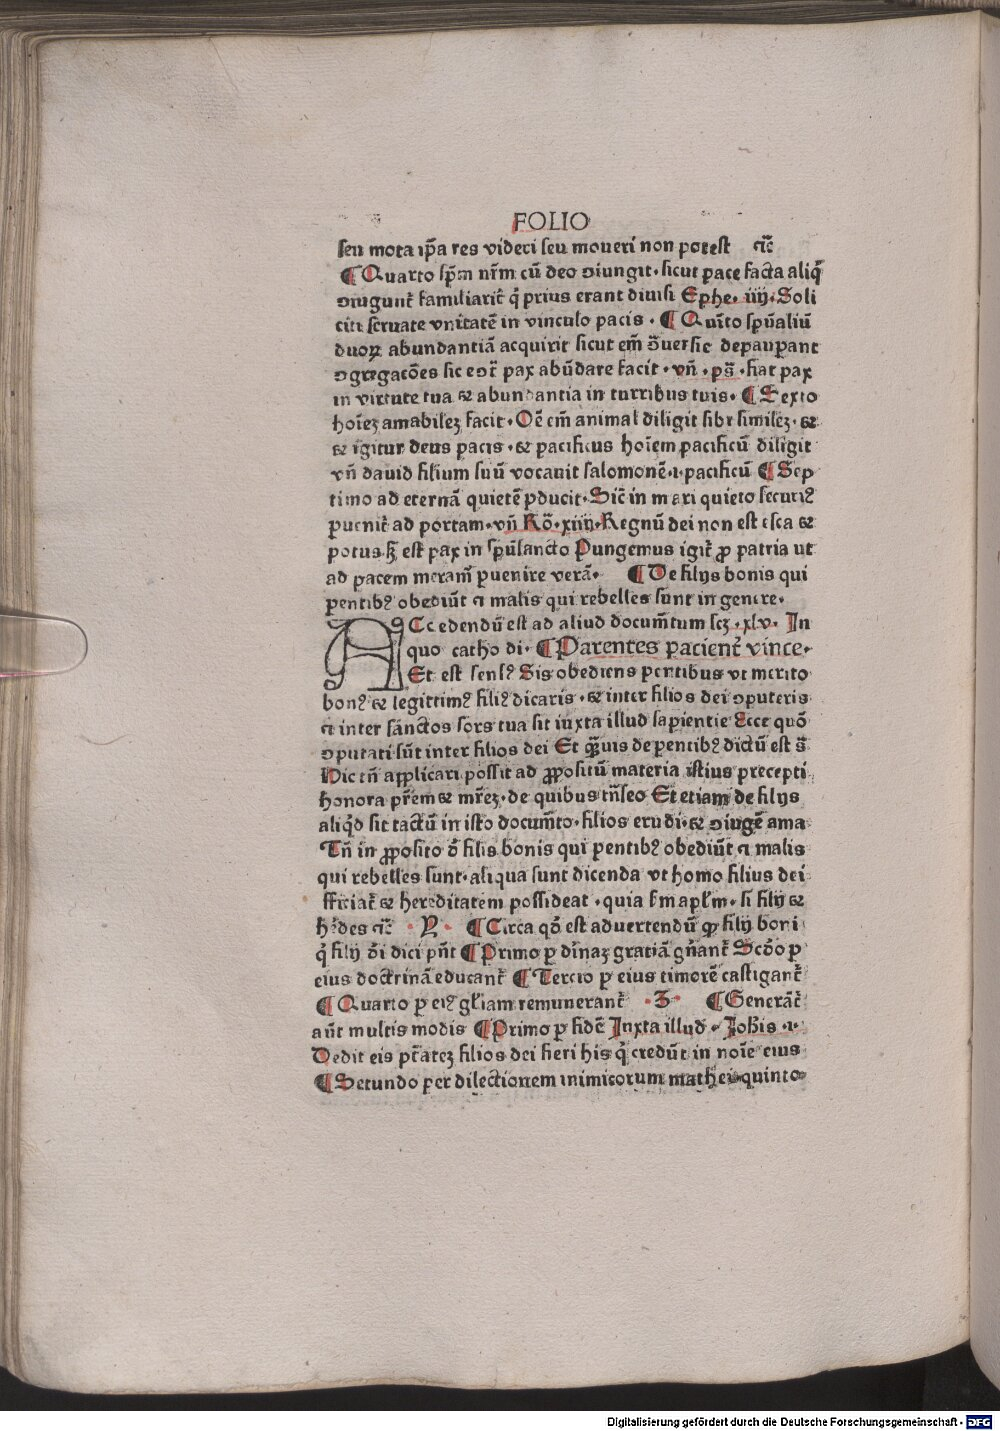 FOLIO
seu mota ip̄a res videri seu moueri non potest ⁊c̄
¶ Quarto sp̄m nr̄m cū deo ↄiungit · sicut pace facta aliq̄
ↄiugunt̄ familiarit̄ q̄ prius erant diuisi Ephe · iiij · Soli
citi seruate vnitatē in vinculo pacis · ¶ Quīto spūaliū
duoꝝ abundantiā acquirit sicut em̄ ꝺ̄uersie depauꝑant
ↄgregacōes sic eↄt̄ pax abūdare facit · vn̄ · ps̄ · fiat pax
in virtute tua ⁊ abundantia in turribus tuis · ¶ Sexto
hoīeꝫ amabileꝫ facit · Oē em̄ animal diligit sibi simileꝫ · ⁊
⁊ igitur deus pacis · ⁊ pacificus hoīem pacificū diligit
vn̄ dauid filium suū vocauit salomonē · i · pacificū ¶ Sep
timo ad eternā quietē ꝓducit · Sic̄ in mari quieto securiꝰ
ꝑuenit̄ ad portam · vn̄ Ro̅ · xiiij · Regnū dei non est esca ⁊
potus sꝫ est pax in spūsancto Pungemus igit̄ ꝓ patria ut
ad pacem meram̄ ꝑuenire verā · ¶ De filijs bonis qui
ꝑentibꝰ obediūt ⁊ malis qui rebelles sunt in genere ·
ACcedendū est ad aliud docum̄tum scꝫ · xlv · In
quo catho di · ¶ Parentes pacient̄ vince ·
Et est sensꝰ Sis obediens ꝑentibus vt merito
bonꝰ ⁊ legittimꝰ filiꝰ dicaris · ⁊ inter filios dei ↄputeris
⁊ inter sānctos sors tua sit iuxta illud sapientie Ecce quō
ↄputati sūt inter filios dei Et q̄uis de ꝑentibꝰ dictū est s̄
Hic tn̄ applicari possit ad ꝓpositū materia istius precepti
honora pr̄em ⁊ mr̄eꝫ · de quibus tn̄seo Et etiam de filijs
aliq̄d sit tactū in isto docum̄to · filios erudi · ⁊ ↄiugē ama
Tn̄ in ꝓposito ꝺ̄ filis bonis qui ꝑentibꝰ obediūt ⁊ malis
qui rebelles sunt · aliqua sunt dicenda vt homo filius dei
efficiat̄ ⁊ hereditatem possideat · quia s̄m apl̄m · si filij ⁊
h̄edes ⁊c̄ · Y · ¶ Circa qō est aduertendū ꝙ filij boni
q̄ filij ꝺ̄i dici pn̄t ¶ Primo ꝑ diīnaꝫ gratiā gn̄ant̄ Scdō ꝑ
eius doctrinā educant̄ ¶ Tercio ꝑ eius timorē castigant̄
¶ Quarto ꝑ eiꝰ gl̄iam remunerant̄ · Z · ¶ Generāt̄
aūt multis modis ¶ Primo ꝑ fidē Iuxta illud · Joh̄is · i ·
Dedit eis ptāteꝫ filios dei fieri his q̄ credūt in noīe eius
¶ Secundo per dilectionem inimicorum mathei quinto
Digitalisierung gefördert durch die Deutsche Forschungsgemeinschaft - DFG